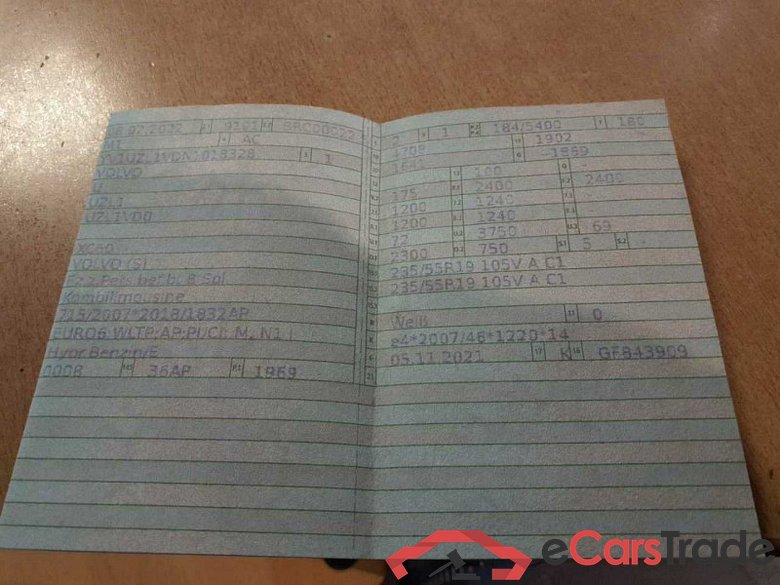 9101
AC
1
VOLVO
U
UZL1
UZL1VD0
XC60
VOLVO (S)
Fz.z.Pers.bef.b. 8 Spl.
Kombilimousine
715/2007*2018/1832AP
EURO6;WLTP;AP;PI/CI; M, N1 I
Hybr.Benzin/E
36AP 1969
2 1 184/5400 180
4708 1902
1969
180
175 2400 2400
1200 1240
1200 1240
72 3750 69
2300 750 5 -
235/55R19 105V A C1
235/55R19 105V A C1
Weiß 0
e4*2007/46*1220*14
05.11.2021 K GF843909
eCarsTrade